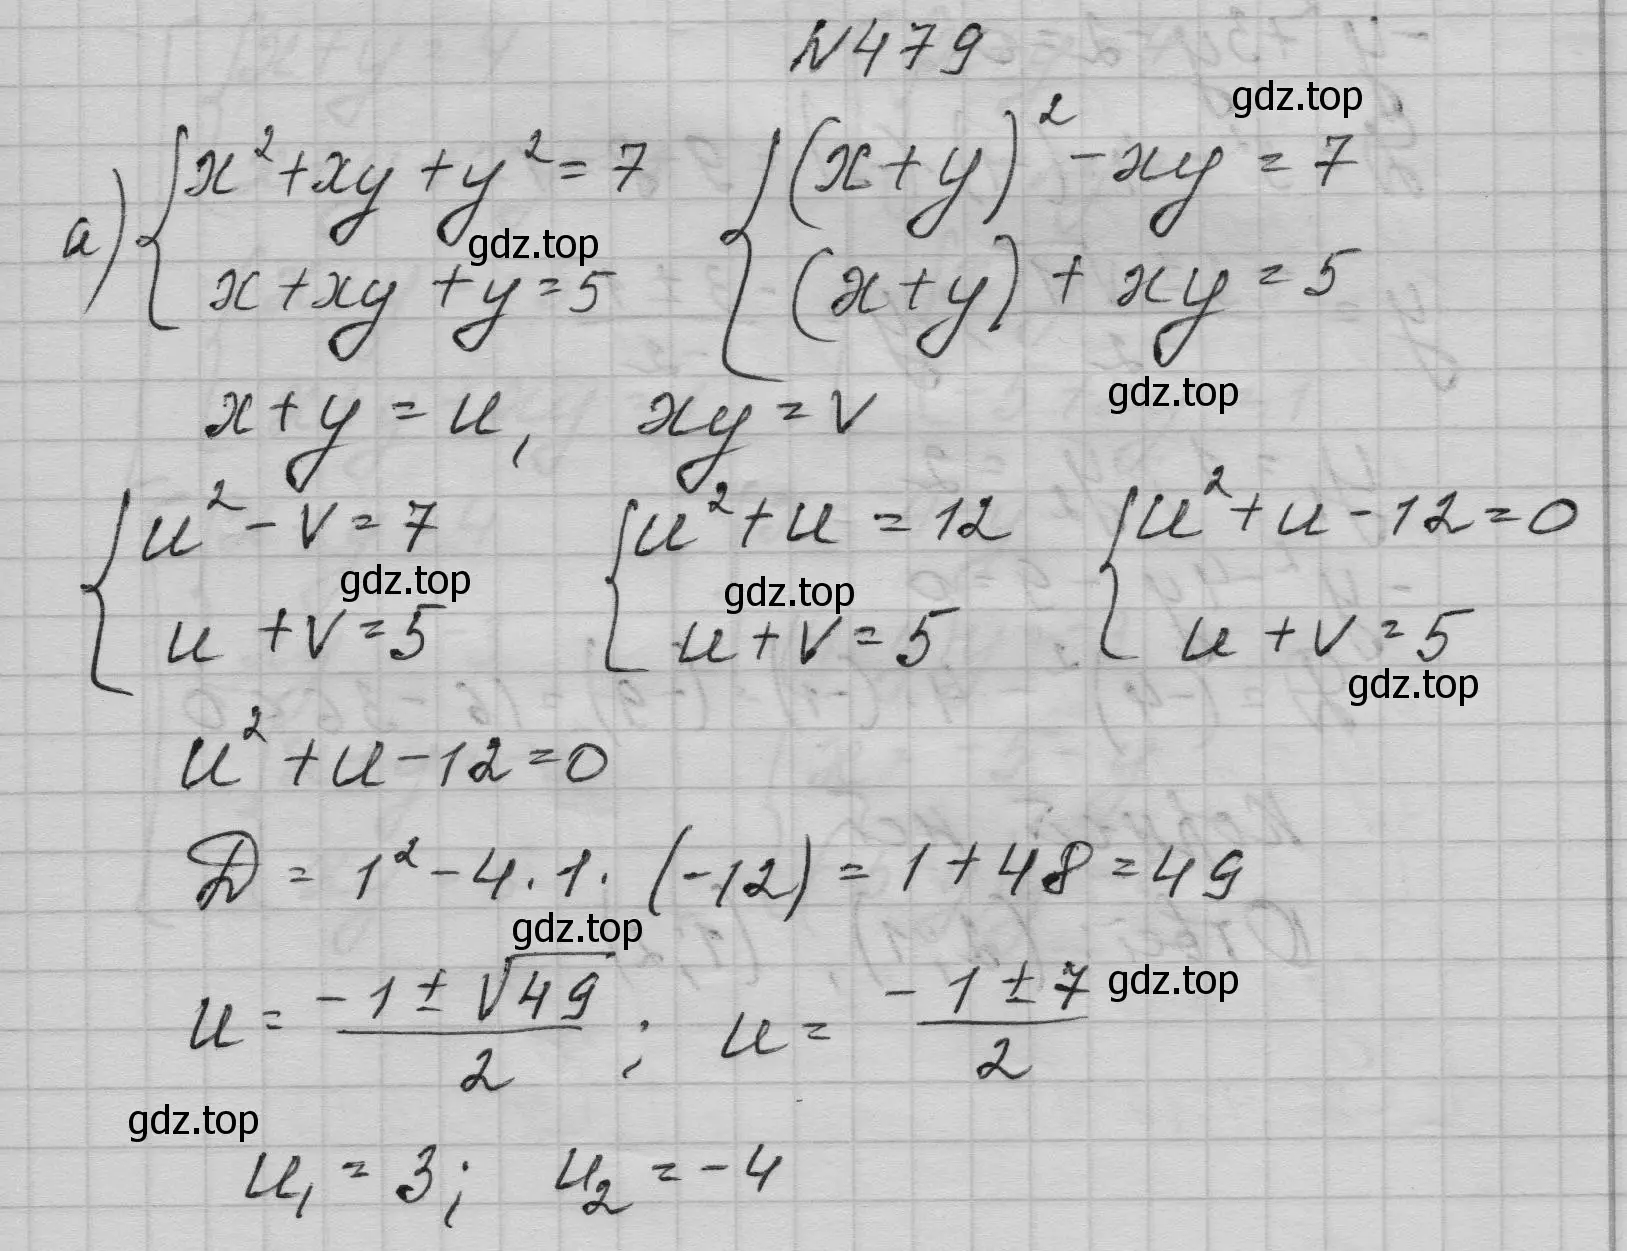 N479
gdz.top
а) { x² + xy + y² = 7 { (x + y)² - xy = 7
gdz.top
x + xy + y = 5 (x + y) + xy = 5
gdz.top
x + y = u, xy = v
{ u² - v = 7 { u² + u = 12 { u² + u - 12 = 0
gdz.top gdz.top
u + v = 5 u + v = 5 u + v = 5
gdz.top
u² + u - 12 = 0
D = 1² - 4 · 1 · (-12) = 1 + 48 = 49
gdz.top
u = (-1 ± √49)/2 ; u = (-1 ± 7)/2
gdz.top
gdz.top
u₁ = 3; u₂ = -4